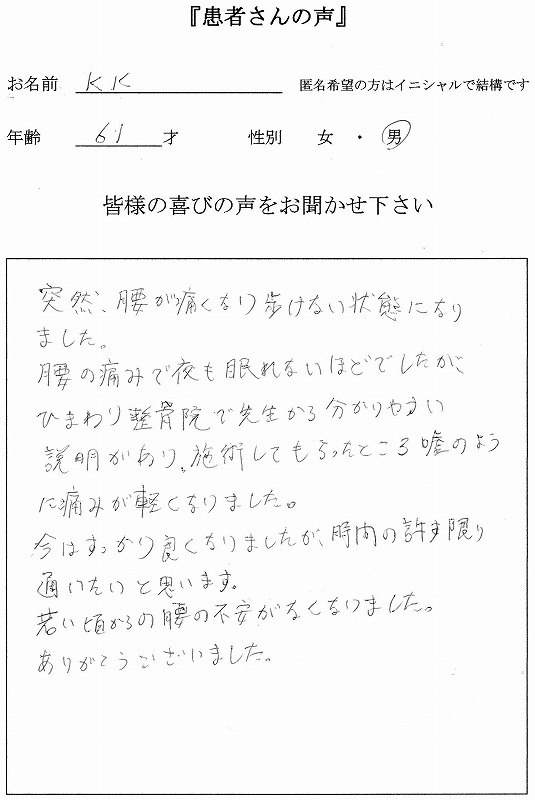 『患者さんの声』
お名前 KK 匿名希望の方はイニシャルで結構です
年齢 61 才 性別 女 ・ 男
皆様の喜びの声をお聞かせ下さい
突然、腰が痛くなり歩けない状態になり
ました。
腰の痛みで夜も眠れないほどでしたが、
ひまわり整骨院で先生から分かりやすい
説明があり、施術してもらったところ嘘のよう
に痛みが軽くなりました。
今はすっかり良くなりましたが、時間の許す限り
通いたいと思います。
若い頃からの腰の不安がなくなりました。
ありがとうございました。